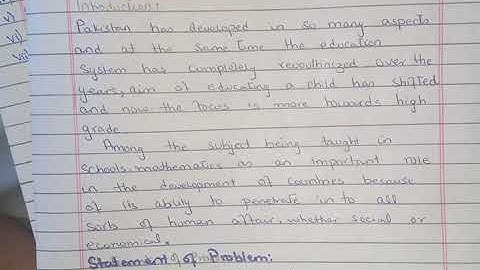 Introduction:
Pakistan has developed in so many aspects
and at the same time the education
system has completely revoulhinized over the
years, aim of educating a child has shifted
and now the focus is more towards high
grade
Among the subject being taught in
schools. mathematics as an important role
in the development of countries because
of its abily to penetrate in to all
sorts of human affair, whether social or
economical.
Statement of Problem:
v)
vi)
vii)